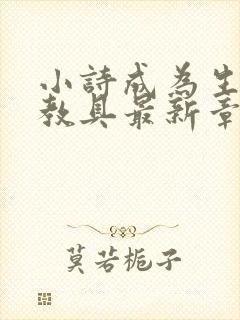 小詩成為生
教具最新章
莫若梔子